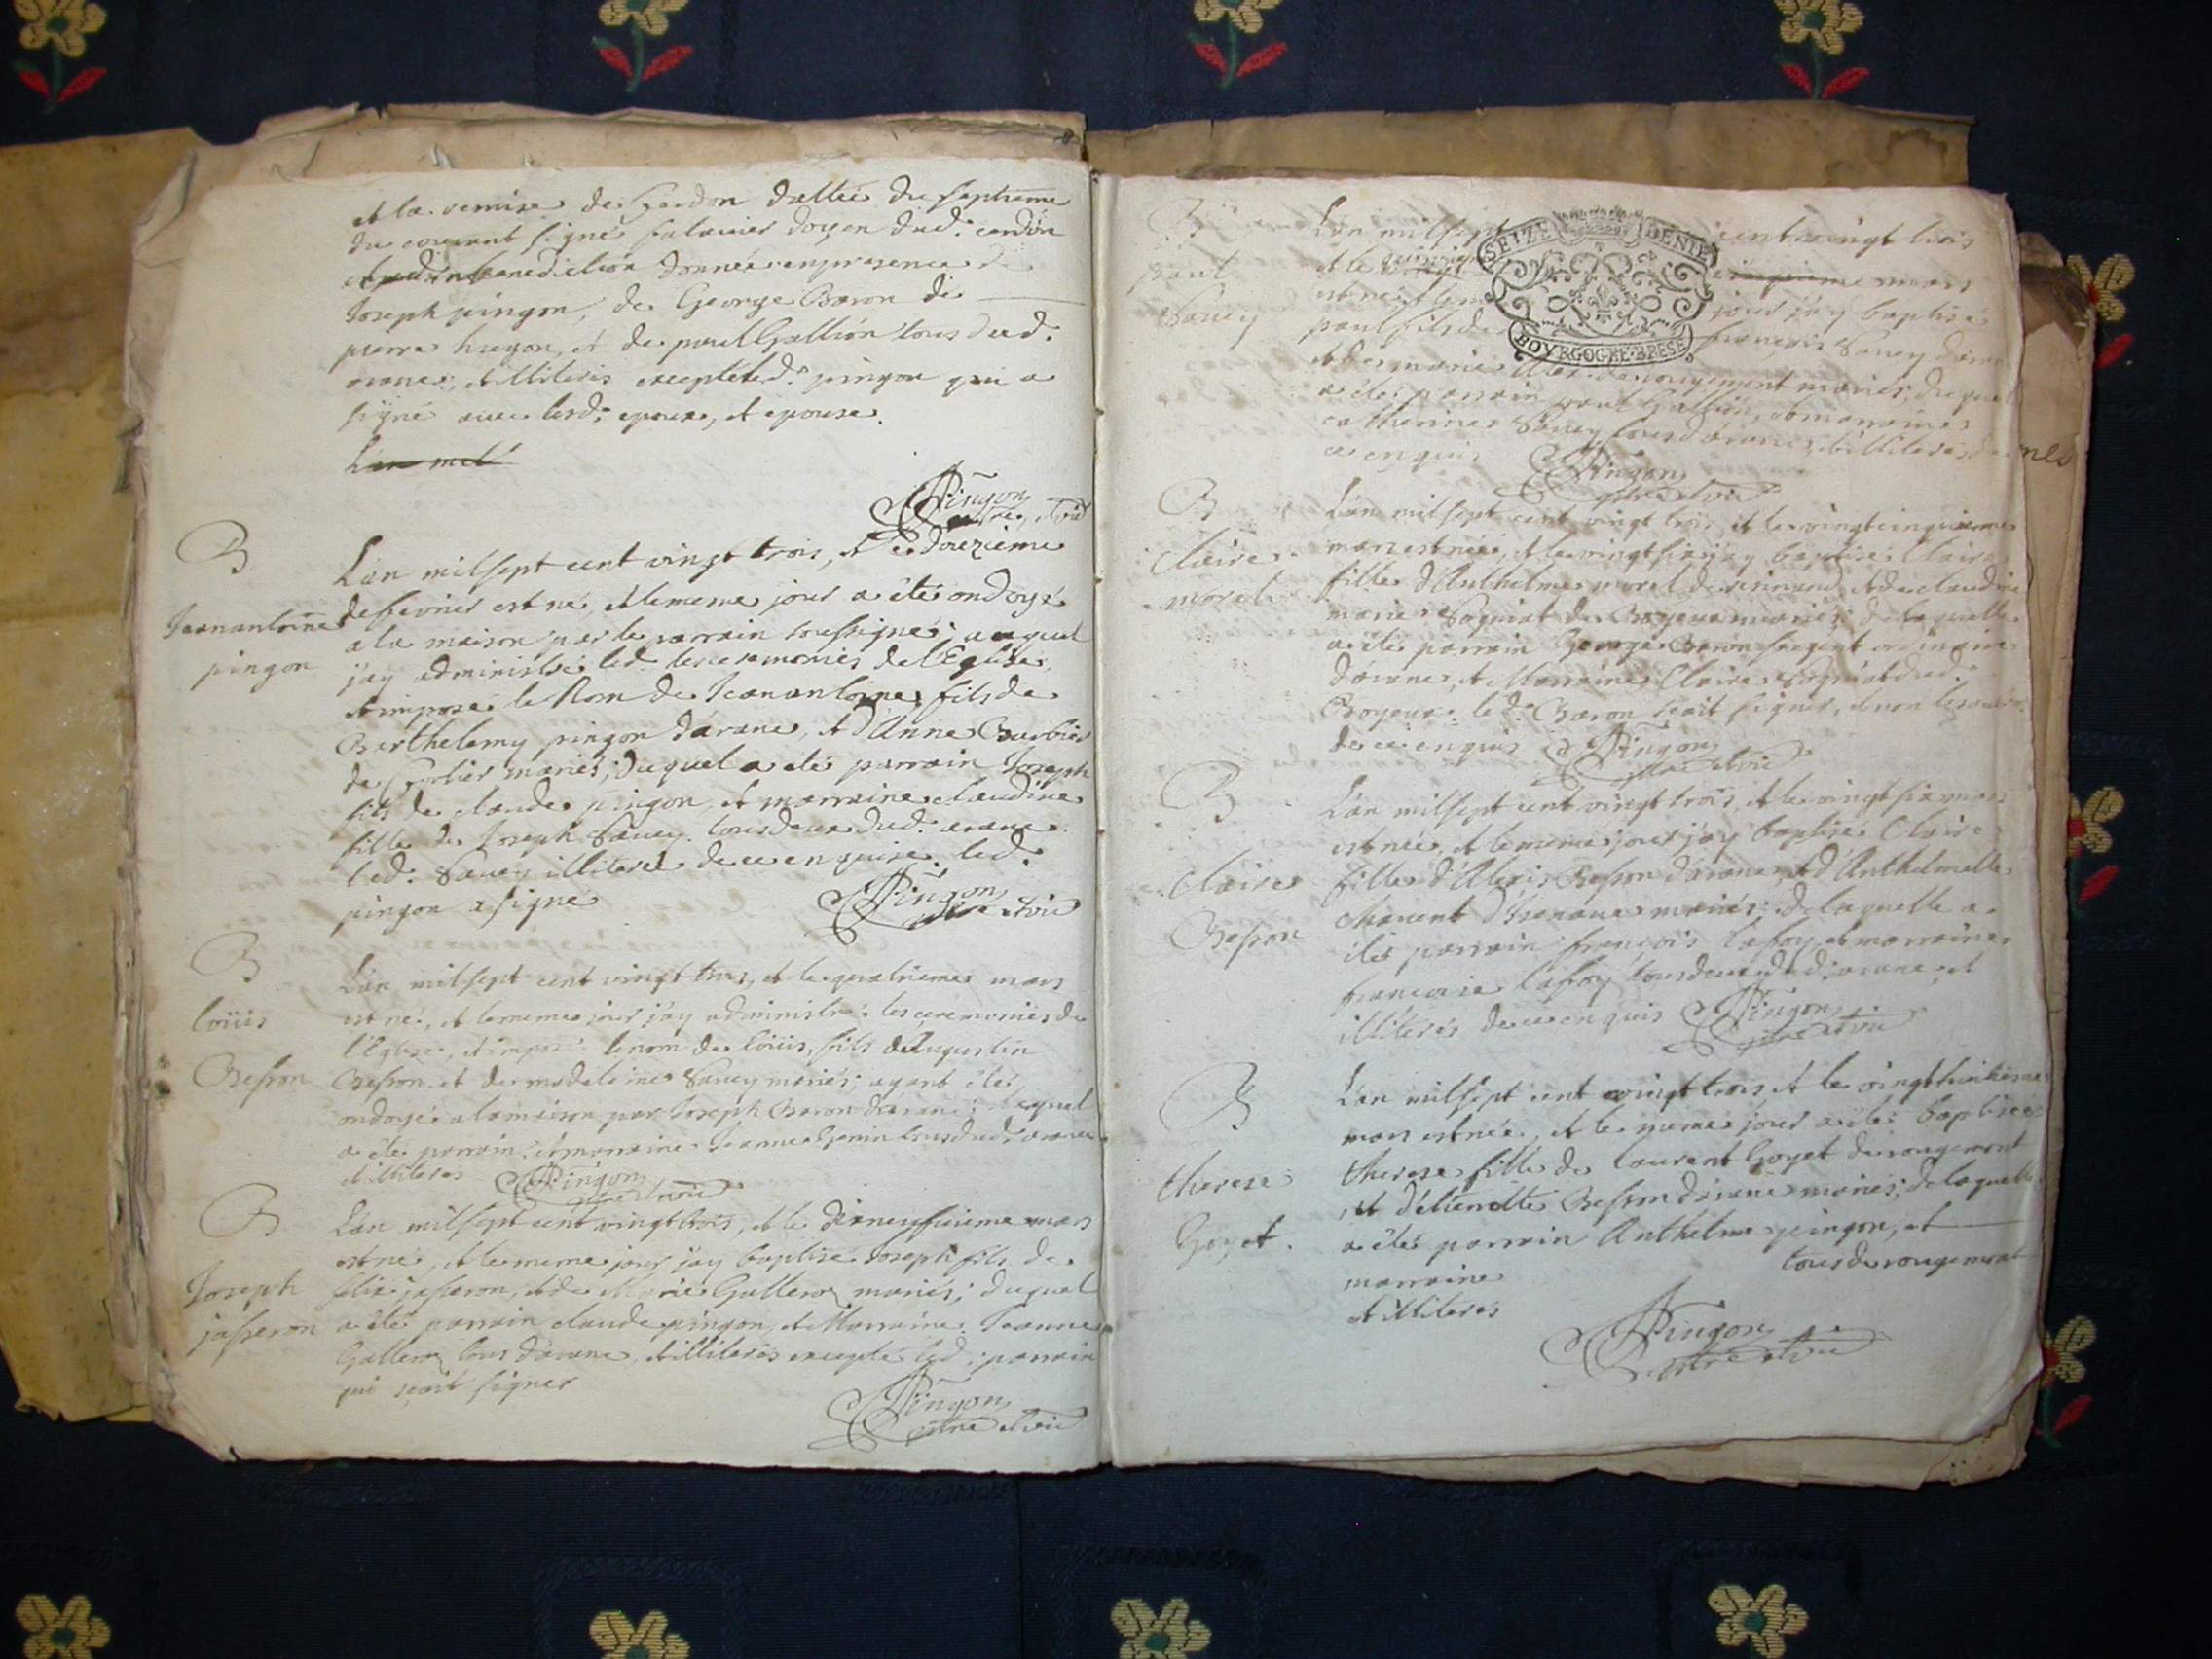 et la remise de Cerdon dattée du septieme
du courant signé doyen dud. cerdon
benediction donnée en presence de
Joseph pingon, de George Baron de
pierre hugon, et de paul Gallion tous dud.
arane, et illiteris excepté led. pingon qui a
signé avec lesd. epoux, et epouse.
L'an mil
Pingon
ptre et vic
B
Jeanantoine
pingon
L'an mil sept cent vingt trois, et le douzieme
de fevrier est né, et le meme jour a été ondoyé
a la maison par le parrain soussigné; auquel
j'ay administré led. les ceremonies de l'Eglise,
et imposé le Nom de Jeanantoine, fils de
Barthelemy pingon d'arane, et d'Anne Barbier
de Corlier mariés; duquel a été parrain Joseph
fils de claude pingon, et marraine claudine
fille de Joseph Savey tous deux dud. arane
led. Savey illiteré de ce enquise. led.
pingon a signé
Pingon
ptre et vic
B
loüis
Besson
L'an mil sept cent vingt trois, et le quatrieme mars
est né, et le meme jour j'ay administré les ceremonies de
l'Eglise, et imposé le nom de loüis, fils d'Augustin
Besson et de madeleine Savey mariés; ayant été
ondoyé a la maison par Joseph Baron d'arane; lequel
a été parrain, et marraine Jeanne tous dud. arane
et illiteres
Pingon
ptre et vic
B
Joseph
jasseron
L'an mil sept cent vingt trois, et le dixneufvieme mars
est né, et le meme jour j'ay baptisé Joseph fils de
felix jasseron, et de Marie Gallero mariés; duquel
a été parrain claude pingon, et Marraine Jeanne
Gallero tous d'arane, et illiterés excepté led. parrain
qui sçait signer
Pingon
ptre et vic
B
paul
Savey
SEIZE DENIE
BOVRGOGNE·BRESSE
L'an mil sept cent vingt trois
et le cinquieme mars
est né, et le jour j'ay baptisé
paul fils de françois Savey d'arane
et de marie de rougemont mariés; duquel
a été parrain paul Gallion, et marraine
catherine Savey tous d'arane, et illiterés de
ce enquis
Pingon
ptre et vic
B
Claire
morel
L'an mil sept cent vingt trois, et le vingtcinquieme
mars est née, et le vingt six j'ay baptisé Claire
fille d'Anthelme morel de, et de claudine
marie Sogniat de Boyeux mariés; de laquelle
a été parrain George Baron sergent ordinaire
d'arane, et Marraine Claire Sogniat dud.
Boyeux. led. Baron sçait signer, et non les autres
de ce enquis
Pingon
ptre et vic
B
Claire
Besson
L'an mil sept cent vingt trois, et le vingt six mars
est née, et le meme jour j'ay baptisé Claire
fille d'Alexis Besson d'arane, et d'Anthelmette
chavent d'Izenave mariés; de laquelle a
été parrain françois lafoy, et marraine
francoise lafoy tous deux dud. arane, et
illiterés de ce enquis
Pingon
ptre et vic
B
therese
Goyet.
L'an mil sept cent vingt trois, et le vingthuitieme
mars est née, et le meme jour a été baptisée
therese fille de laurent Goyet de rougemont
et d'étiennette Besson d'arane mariés; de laquelle
a été parrain Anthelme pingon, et
marraine tous de rougemont
et illiteres
Pingon
ptre et vic